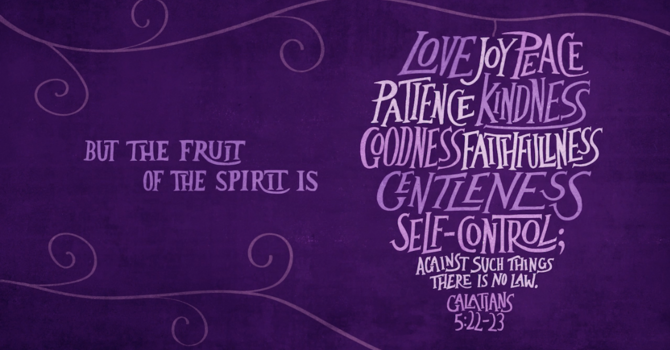 BUT THE FRUIT
OF THE SPIRIT IS
LOVE JOY PEACE
PATIENCE KINDNESS
GOODNESS FAITHFULLNESS
GENTLENESS
SELF-CONTROL;
AGAINST SUCH THINGS
THERE IS NO LAW.
GALATIANS
5:22-23